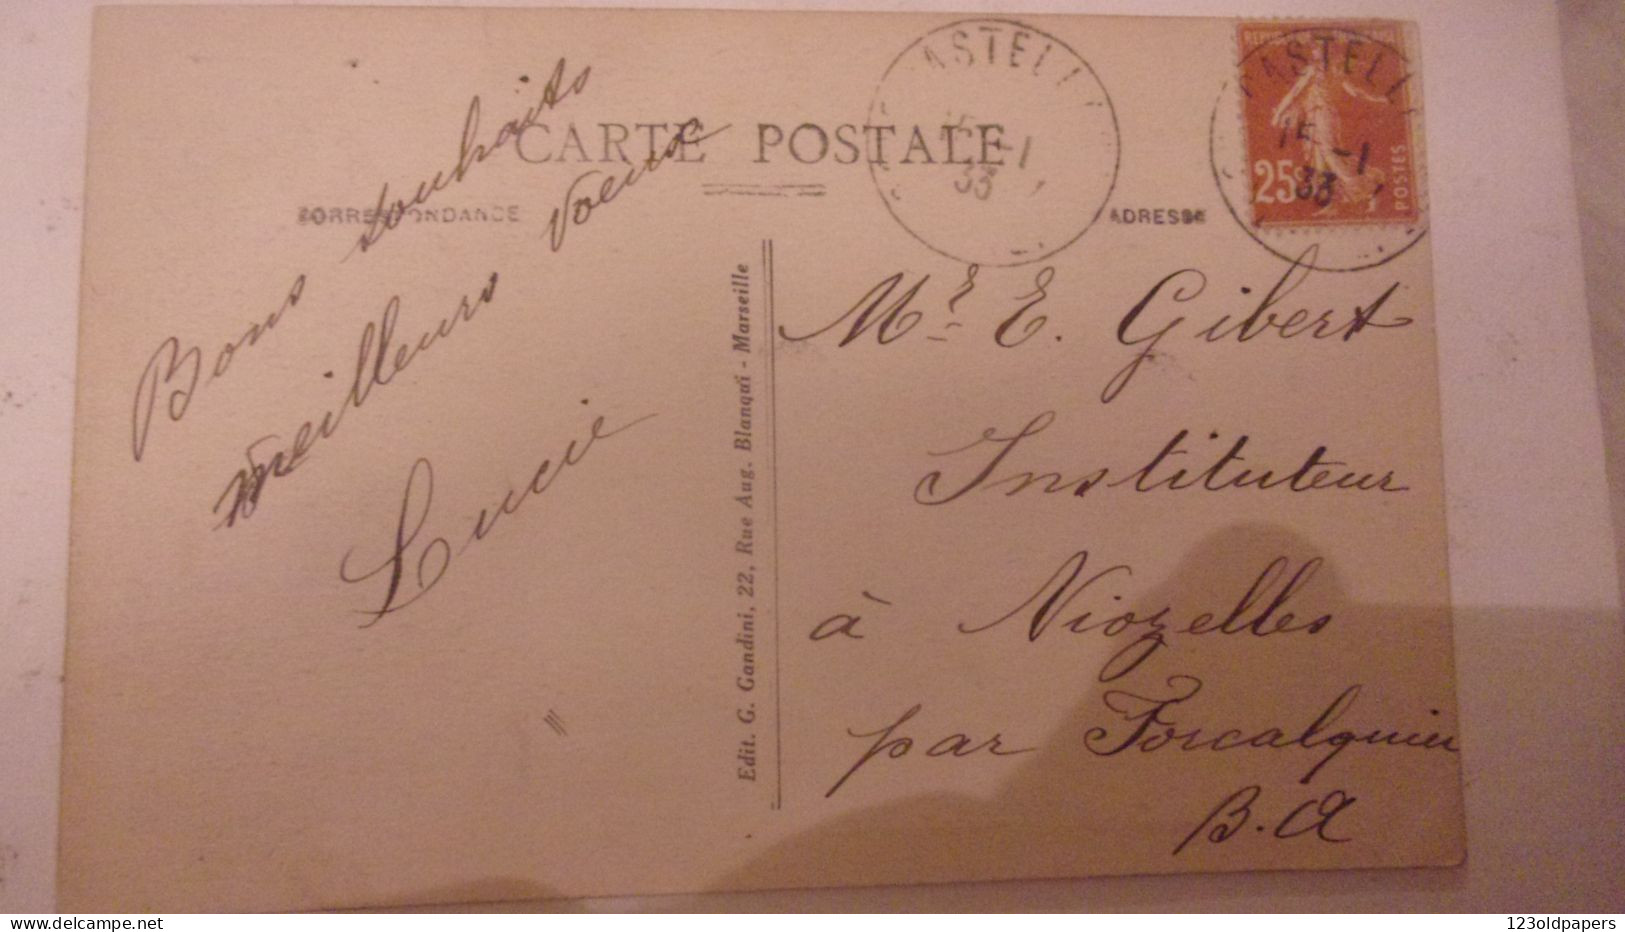 CARTE POSTALE
CORRESPONDANCE
ADRESSE
ASTELL
15 -1
33
REPUBLIQUE FRANÇAISE
ASTELL
15 -1
33
25c
POSTES
Bons souhaits
meilleurs voeux
Lucie
Edit. G. Gandini, 22, Rue Aug. Blanqui - Marseille
Mr E. Gibert
Instituteur
à Niozelles
par Forcalquier
B. A
123oldpapers